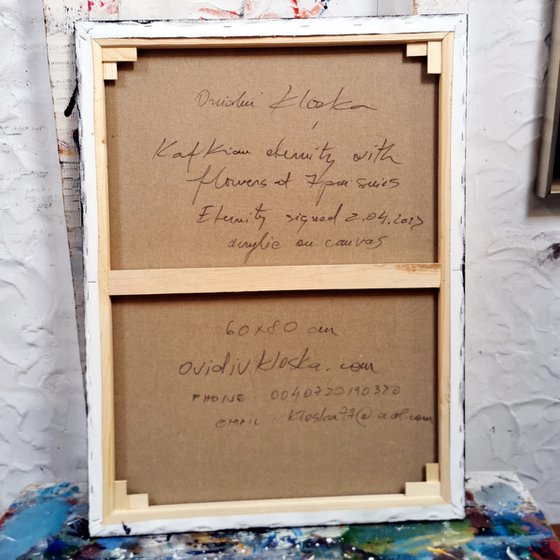 Ovidiu Kloska
Kafkian eternity with
flowers at 7pm series
Eternity signed 2.04.2023
acrylic on canvas
60x80 cm
ovidiukloska.com
PHONE. 0040720190320
EMAIL. kloska77@aol.com